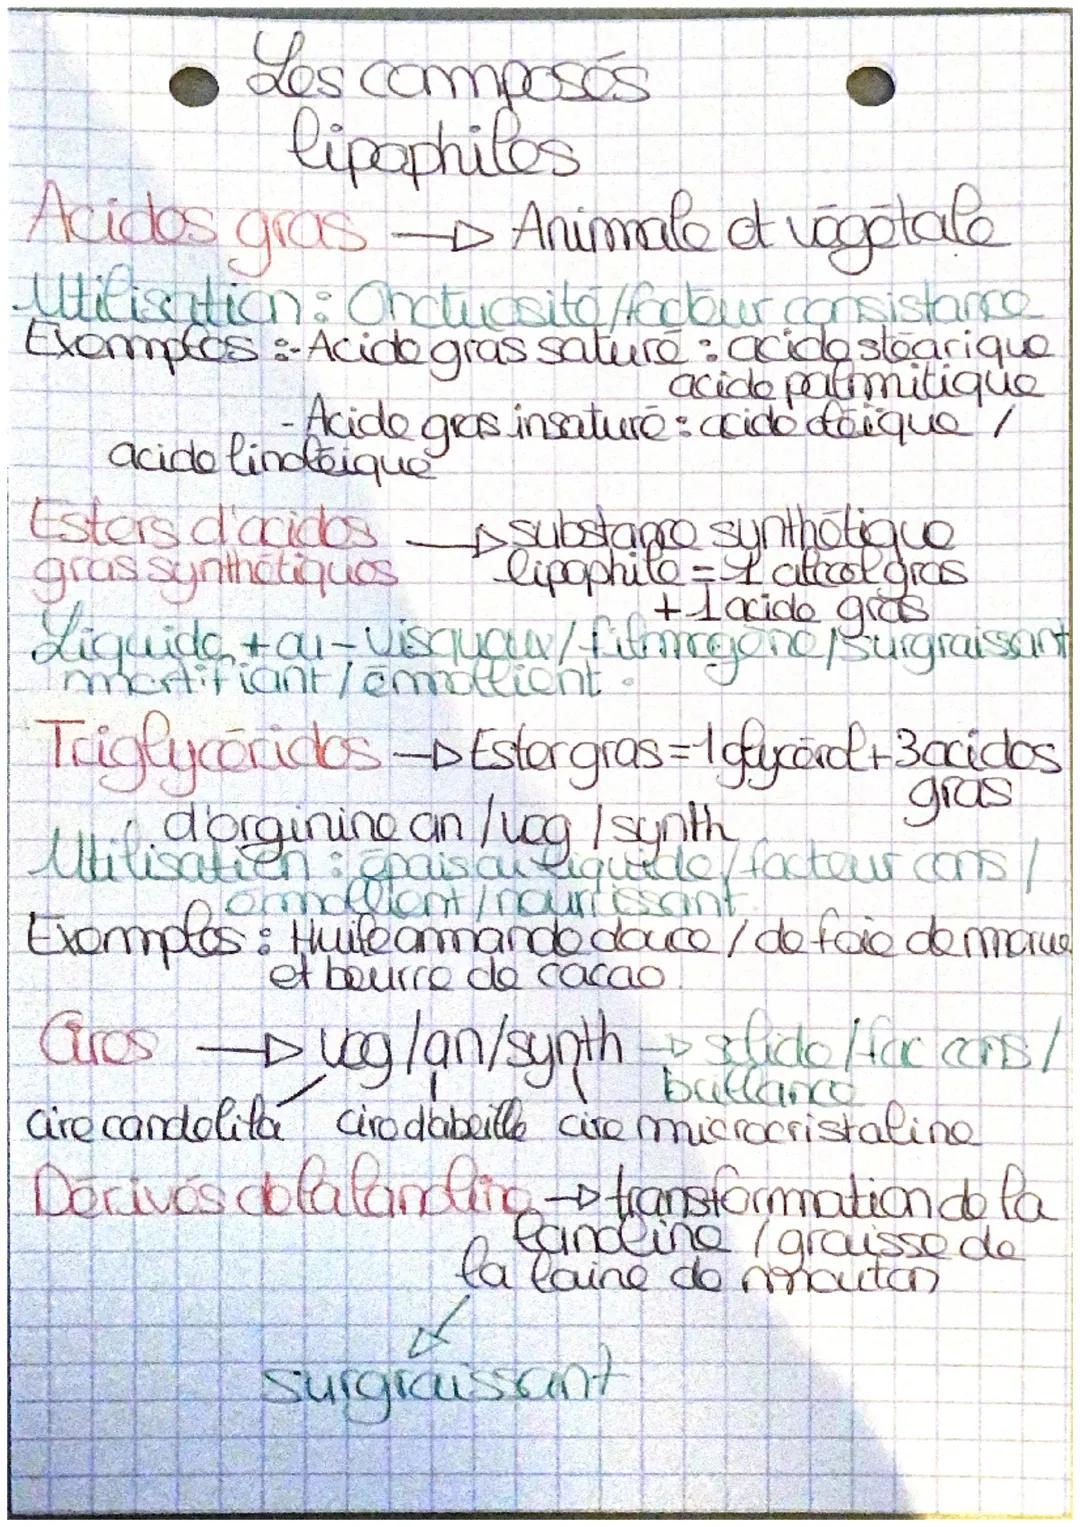 Les composés
lipophiles
Acides gras → Animale et végétale
Utilisation : Onctuosité/facteur consistance
Exemples :- Acide gras saturé : acide stéarique
acide palmitique
- Acide gras insaturé : acide oléique /
acide linoléique
Esters d'acides → substance synthétique
gras synthétiques lipophile = 1 alcool gras
+ 1 acide gras
Liquide + ou - visqueux/filmogène/surgraissant
/émollient.
Triglycérides → Ester gras = 1 glycérol + 3 acides
gras
d'orginine an / veg / synth
Utilisation : épais ou liquide / facteur cons /
émollient / nourrissant
Exemples : Huile amande douce / de foie de morue
et beurre de cacao
Cires → veg/an/synth → solide / fac cons /
brillance
cire candelila cire d'abeille cire microcristaline
Dérivés de la lanoline → transformation de la
lanoline / graisse de
la laine de mouton
surgraissant